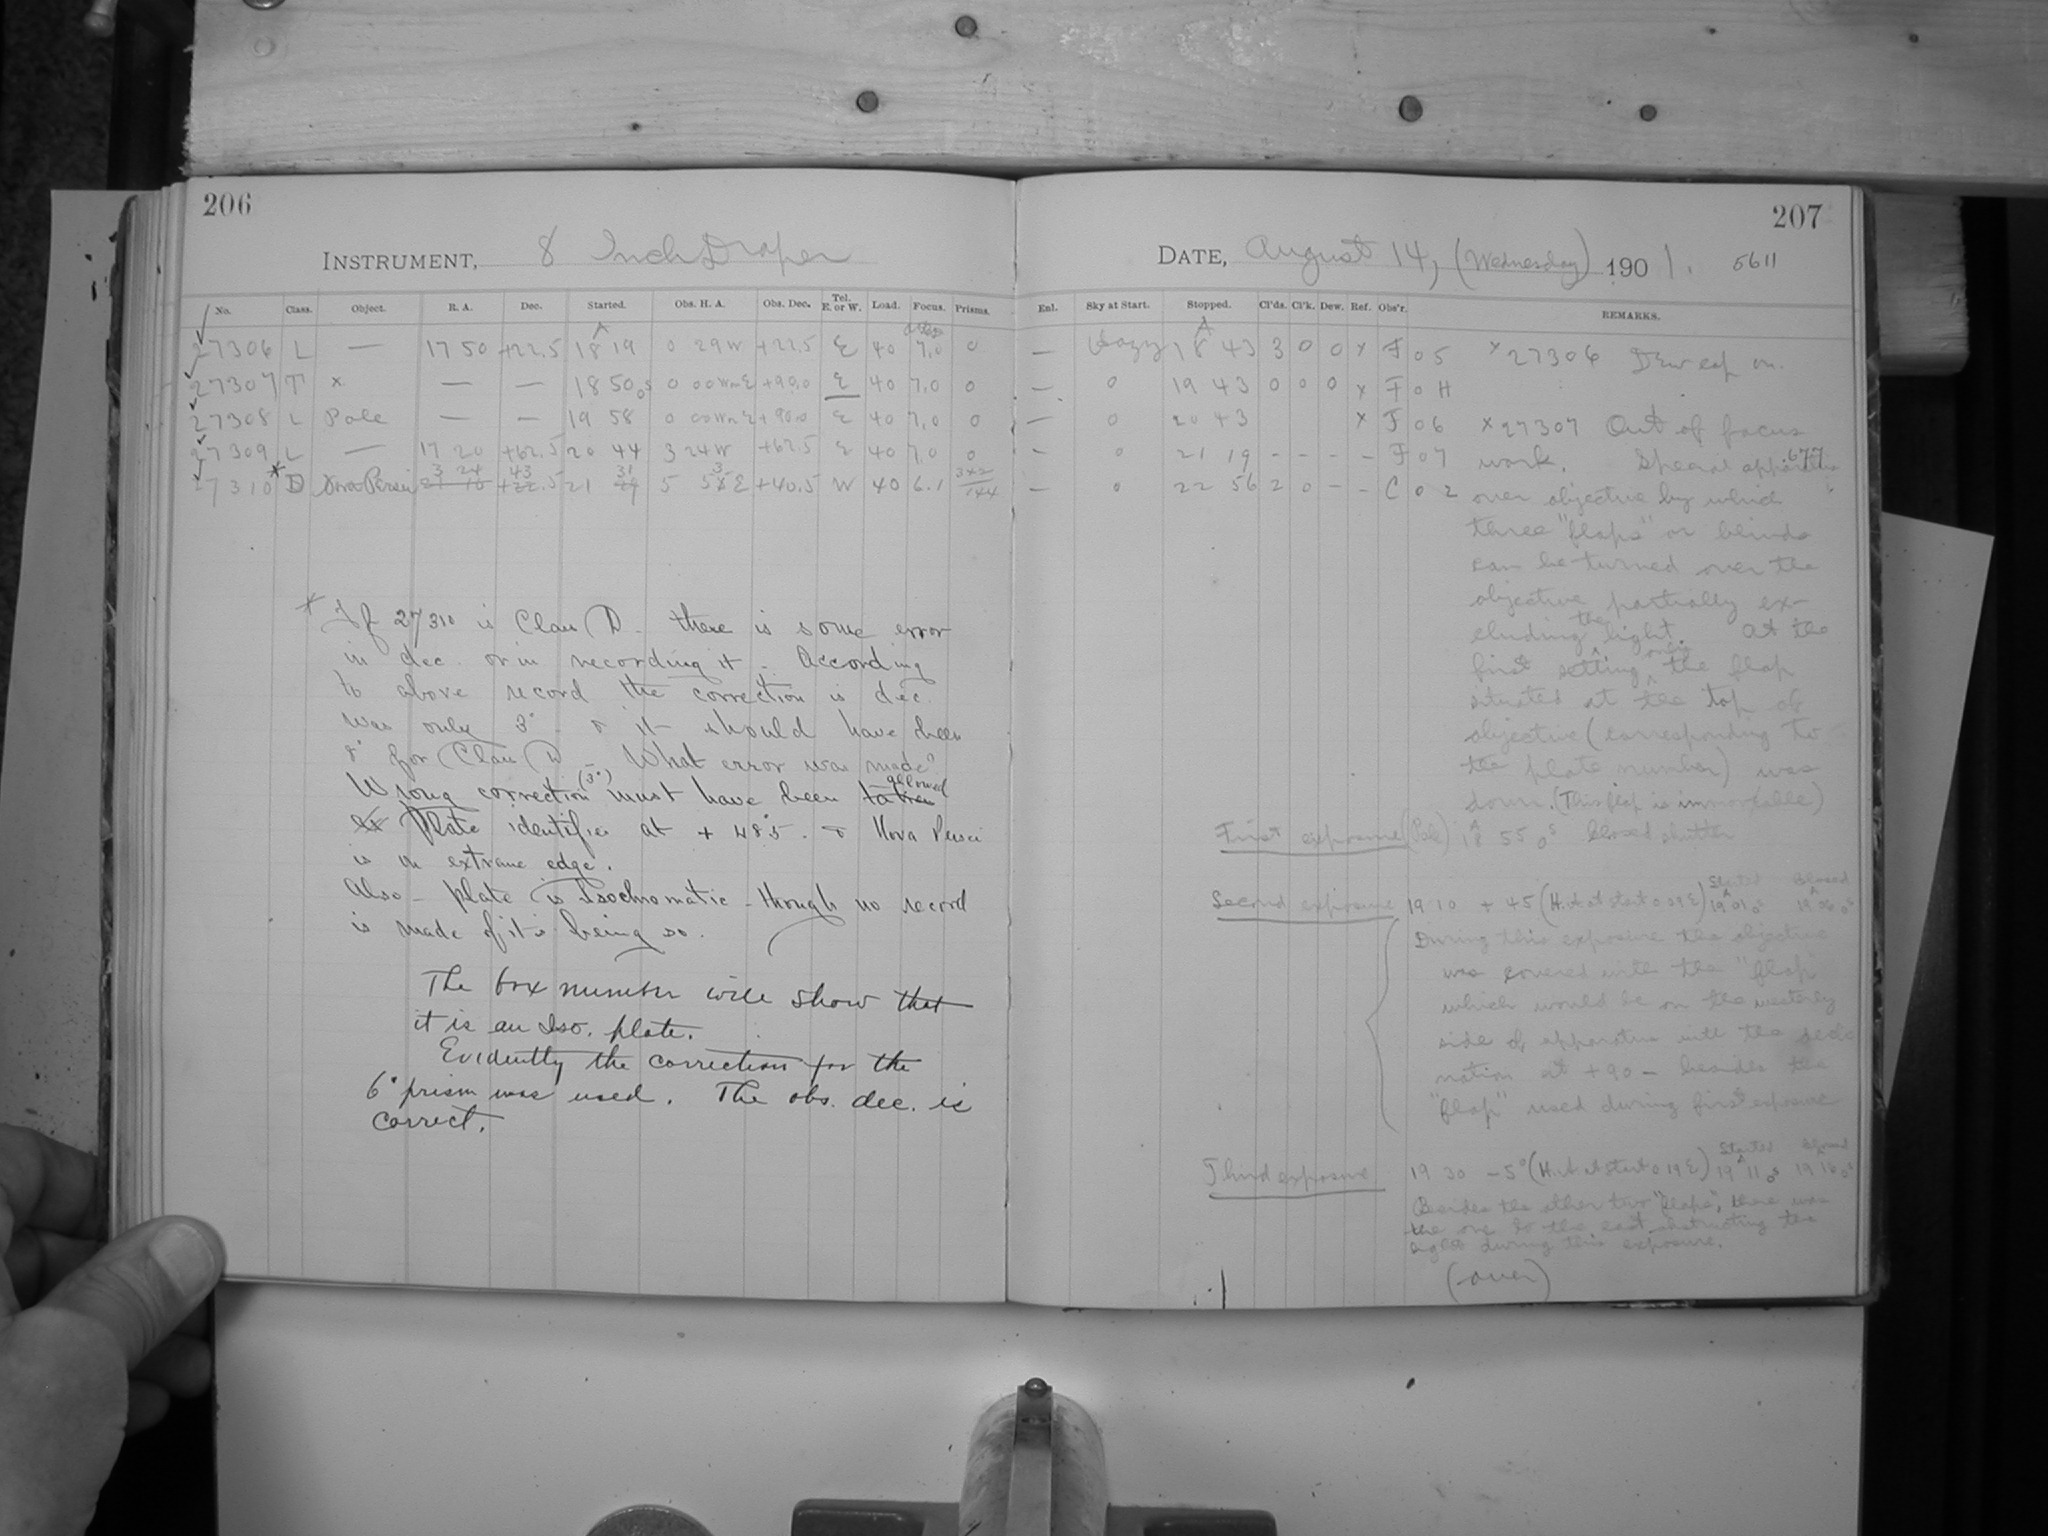 206
INSTRUMENT, 8 Inch Draper
No. Class. Object. R. A. Dec. Started. Obs. H. A. Obs. Dec. Tel. E. or W. Load. Focus. Prisms.
27306 L — 17 50 +22.5 18 19 0 29 W +22.5 E 40 7.0 0
27307 T x — — 18 50 0s 0 00 W nE +90.0 E 40 7.0 0
27308 L Pole — — 19 58 0 00 W nE +90.0 E 40 7.0 0
27309 L — 17 20 +62.5 20 44 3 24 W +62.5 E 40 7.0 0
27310 * D Nova Persei 3 24 43 .5 21 31 5 E +40.5 W 40 6.1
* If 27310 is Class D - there is some error
in dec. or in recording it. According
to above record the correction is dec.
was only 3° - & it should have been
for Class D - What error was made?
Wrong correction (3°) must have been taken allowed
Plate identifies at + 48°5. & Nova Persei
is on extreme edge.
Also - plate is Isochromatic - though no record
is made of it's being so.
The box number will show that
it is an Iso. plate.
Evidently the correction for the
6° prism was used. The obs. dec. is
correct.
207
DATE, August 14, (Wednesday) 1901. 5611
Enl. Sky at Start. Stopped. Cl'ds. Cl'k. Dew. Ref. Obs'r. REMARKS.
— Hazy 18 43 3 0 0 x F 05 x 27306 Dew cap on.
— 0 19 43 0 0 0 x F 0 H
— 0 20 43 x F 06 x 27307 Out of focus
— 0 21 19 - - - - F 07 work. Special apparatus 677
— 0 22 56 2 0 - - C 0 2 over objective by which
three "flaps" or blinds
can be turned over the
objective partially ex-
cluding the light. At the
first setting only the flap
situated at the top of
objective (corresponding to
the plate number) was
down. (This flap is immovable)
First exposure (Pole) 18 55 0s closed shutter
Second exposure 19 10 + 45 (H.A at start 0 09 E) Started 19 01 0s Closed 19 06 0s
During this exposure the objective
was covered with the "flap"
which would be on the westerly
side of apparatus with the decli
nation at +90 - besides the
"flap" used during first exposure
Third exposure 19 30 -5° (H.A at start 0 19 E) Started 19 11 0s Closed 19 16 0s
Besides the other two "flaps", there was
the one to the east obstructing the
during this exposure.
(over)